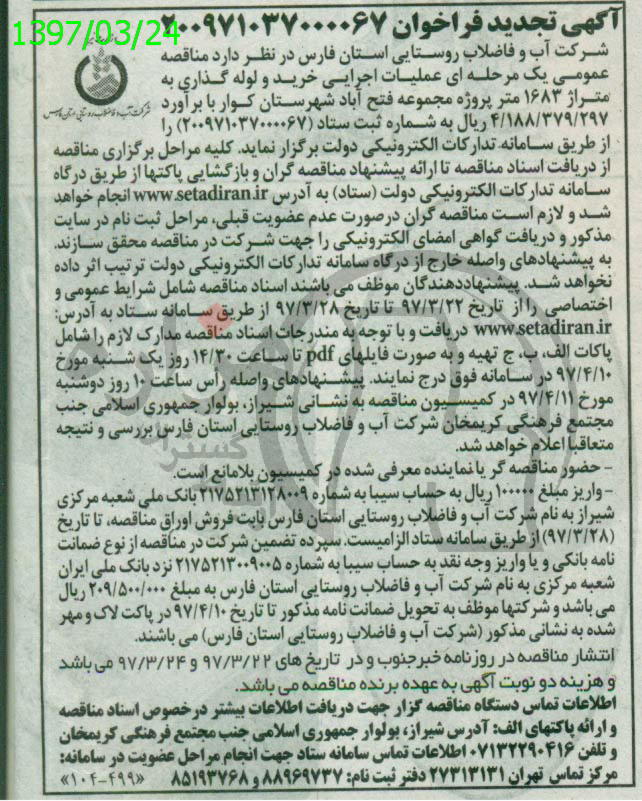 1397/03/24
آگهی تجدید فراخوان ۲۰۰۹۷۱۰۳۷۰۰۰۰۰۶۷
شرکت آب و فاضلاب روستایی استان فارس
شرکت آب و فاضلاب روستایی استان فارس در نظر دارد مناقصه
عمومی یک مرحله ای عملیات اجرایی خرید و لوله گذاری به
متراژ ۱۶۸۳ متر پروژه مجموعه فتح آباد شهرستان کوار با برآورد
۴/۱۸۸/۳۷۹/۲۹۷ ریال به شماره ثبت ستاد (۲۰۰۹۷۱۰۳۷۰۰۰۰۰۶۷) را
از طریق سامانه تدارکات الکترونیکی دولت برگزار نماید. کلیه مراحل برگزاری مناقصه
از دریافت اسناد مناقصه تا ارائه پیشنهاد مناقصه گران و بازگشایی پاکتها از طریق درگاه
سامانه تدارکات الکترونیکی دولت (ستاد) به آدرس www.setadiran.ir انجام خواهد
شد و لازم است مناقصه گران درصورت عدم عضویت قبلی، مراحل ثبت نام در سایت
مذکور و دریافت گواهی امضای الکترونیکی را جهت شرکت در مناقصه محقق سازند.
به پیشنهادهای واصله خارج از درگاه سامانه تدارکات الکترونیکی دولت ترتیب اثر داده
نخواهد شد. پیشنهاددهندگان موظف می باشند اسناد مناقصه شامل شرایط عمومی و
اختصاصی را از تاریخ ۹۷/۳/۲۲ تا تاریخ ۹۷/۳/۲۸ از طریق سامانه ستاد به آدرس:
www.setadiran.ir دریافت و با توجه به مندرجات اسناد مناقصه مدارک لازم را شامل
پاکات الف، ب، ج تهیه و به صورت فایلهای pdf تا ساعت ۱۴/۳۰ روز یک شنبه مورخ
۹۷/۴/۱۰ در سامانه فوق درج نمایند. پیشنهادهای واصله رأس ساعت ۱۰ روز دوشنبه
مورخ ۹۷/۴/۱۱ در کمیسیون مناقصه به نشانی شیراز، بولوار جمهوری اسلامی جنب
مجتمع فرهنگی کریمخان شرکت آب و فاضلاب روستایی استان فارس بررسی و نتیجه
متعاقبا اعلام خواهد شد.
- حضور مناقصه گر یا نماینده معرفی شده در کمیسیون بلامانع است.
- واریز مبلغ ۱۰۰۰۰۰ ریال به حساب سیبا به شماره ۲۱۷۵۲۱۳۱۲۸۰۰۹ بانک ملی شعبه مرکزی
شیراز به نام شرکت آب و فاضلاب روستایی استان فارس بابت فروش اوراق مناقصه، تا تاریخ
(۹۷/۳/۲۸) از طریق سامانه ستاد الزامیست. سپرده تضمین شرکت در مناقصه از نوع ضمانت
نامه بانکی و یا واریز وجه نقد به حساب سیبا به شماره ۲۱۷۵۲۱۳۰۰۹۰۰۵ نزد بانک ملی ایران
شعبه مرکزی به نام شرکت آب و فاضلاب روستایی استان فارس به مبلغ ۲۰۹/۵۰۰/۰۰۰ ریال
می باشد و شرکتها موظف به تحویل ضمانت نامه مذکور تا تاریخ ۹۷/۴/۱۰ در پاکت لاک و مهر
شده به نشانی مذکور (شرکت آب و فاضلاب روستایی استان فارس) می باشند.
انتشار مناقصه در روزنامه خبرجنوب و در تاریخ های ۹۷/۳/۲۲ و ۹۷/۳/۲۴ می باشد
و هزینه دو نوبت آگهی به عهده برنده مناقصه می باشد.
اطلاعات تماس دستگاه مناقصه گزار جهت دریافت اطلاعات بیشتر درخصوص اسناد مناقصه
و ارائه پاکتهای الف: آدرس شیراز، بولوار جمهوری اسلامی جنب مجتمع فرهنگی کریمخان
و تلفن ۰۷۱۳۲۲۹۰۴۱۶ اطلاعات تماس سامانه ستاد جهت انجام مراحل عضویت در سامانه:
مرکز تماس تهران ۲۷۳۱۳۱۳۱ دفتر ثبت نام: ۸۸۹۶۹۷۳۷ و ۸۵۱۹۳۷۶۸ «۱۰۴-۴۹۹»